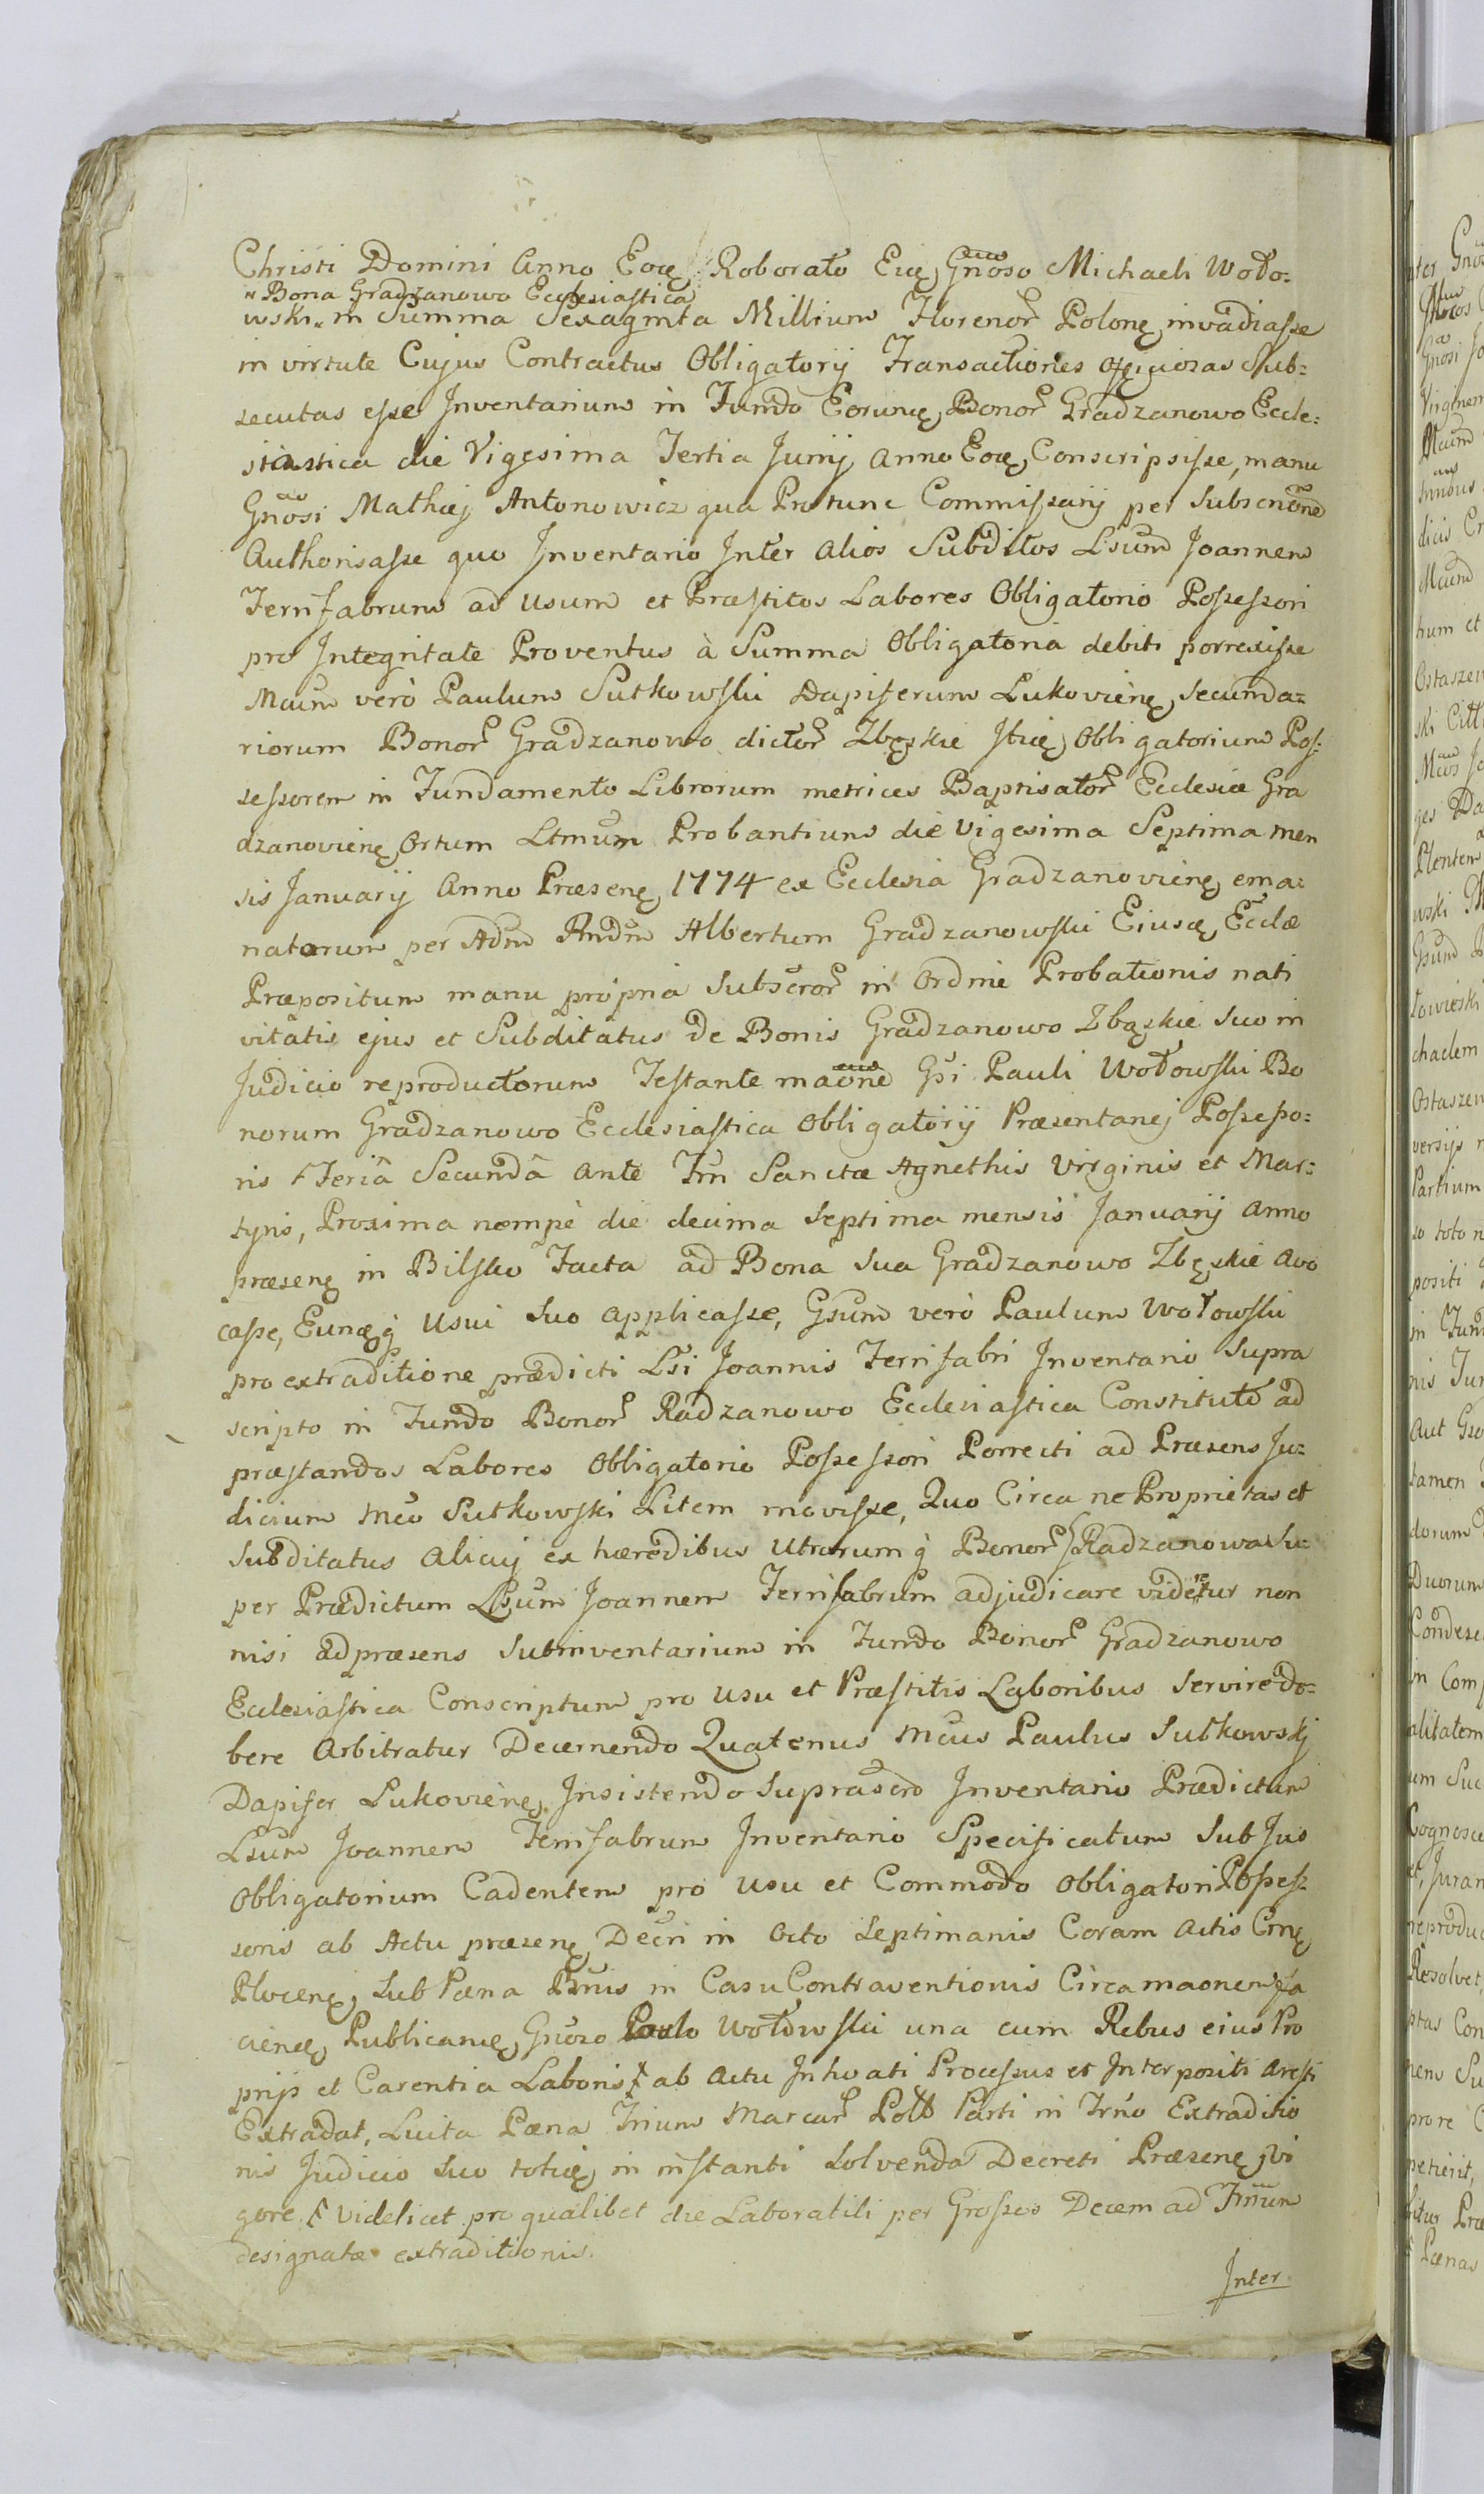 Christi Domini Anno Eoꝗ Roborato Eiꝗ Gnoso Michaeli Woło:
"Bona Gradzanowo Ecclesiastica
wski" in Summa Sexaginta Millium Florenor Polonꝗ invadiasse
in virtute Cujus Contractus Obligatorij Transactiones officiosas Sub:
secutas esse Inventarium in Fundo Eorumꝗ Bonor Gradzanowo Eccle:
siastica die Vigesima Tertia Junij Anno Eoꝗ Conscripsisse, manu
Gnosi Mathæj Antonowicz qua Protunc Commissarij per Subscrione
Authorisasse quo Inventario Inter alios Subditos Lsum Joannem
Ferrifabrum ad usum et Præstitos Labores Obligatorio Possessori
pro Integritate Proventus à Summa Obligatoria debiti porrexisse
Mcum verò Paulum Sutkowski Dapiferum Lukovienꝗ Secunda:
riorum Bonor Gradzanowo dictor Zbęskie Itiꝗ Obligatorium Pos:
sessorem in Fundamento Librorum metrices Baptisator Ecclesiæ Gra
dzanovienꝗ Ortum Ltmum Probantium die Vigesima Septima Men
sis Januarij Anno Præsenꝗ 1774 ex Ecclesia Gradzanovienꝗ ema:
natorum per Adm Rndm Albertum Gradzanowski Eiusꝗ Ecclæ
Præpositum manu propria Subscror in Ordine Probationis nati
vitatis ejus et Subditatus de Bonis Gradzanowo Zbąskie Suo in
Judicio reproductorum Testante maone Gsi Pauli Wołowski Bo
norum Gradzanowo Ecclesiastica Obligatorij Præsentanej Possesso:
ris Feriâ Secundâ ante Fm Sanctæ Agnethis Virginis et Mar:
tyris, Proxima nempè die decima Septima mensis Januarij Anno
præsenꝗ in Bilsko Facta ad Bona Sua Gradzanowo Zbęskie Avo
casse, Eunꝗꝗ Usui Suo applicasse, Gsum verò Paulum Wołowski
pro extraditione prædicti Lsi Joannis Ferrifabri Inventario Supra
scripto in Fundo Bonor Radzanowo Ecclesiastica Constituto ad
præstandos Labores Obligatorio Possessori Porrecti ad Præsens Ju:
dicium Mco Sutkowski Litem movisse, Quo Circa ne Proprietas et
Subditatus alicuj ex hæredibus Utrorumꝗ Bonor Radzanowa Su:
per Prædictum Lsum Joannem Ferrifabrum adjudicare videretur non
nisi ad præsens Subinventarium in Fundo Bonor Gradzanowo
Ecclesiastica Conscriptum pro usu et Præstitis Laboribus Servire de:
bere Arbitratur Decernendo Quatenus Mcus Paulus Sutkowskj
Dapifer Lukovienꝗ Insistendo Suprascro Inventario Prædictum
Lsum Joannem Ferrifabrum Inventario Specificatum Sub Jus
Obligatorium Cadentem pro usu et Commodo Obligatori Posses:
soris ab Actu præsenꝗ Decri in Octo Septimanis Coram Actis Crnꝗ
Plocenꝗ, Sub Pæna Bnis in Casu Contraventionis Circa maonem fa
cienꝗ Publicanꝗ, Gnoso Paulo Wołowski una cum Rebus eius Pro
prijs et Carentia Laboris ab Actu Inhoati Processus et Interpositi Aresti
Extradat, Luita Pæna Trium Marcar Poll Parti in Trno Extraditio
nis Judicio Suo totiꝗ in instanti Solvenda Decreti Præsenꝗ vi
gore videlicet pro qualibet die Laboratili per Grossos Decem ad Trmum
designatæ extraditionis.
Inter